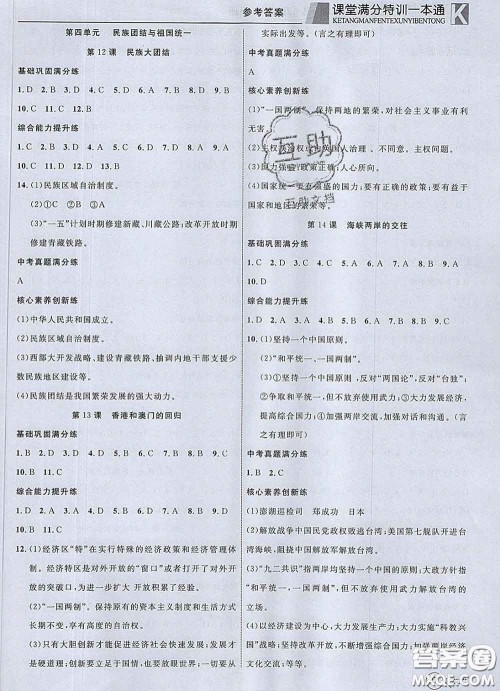 参考答案
课堂满分特训一本通
KETANGMANFENTEXUNYIBENTONG
第四单元 民族团结与祖国统一
第12课 民族大团结
基础巩固满分练
1. D 2. A 3. D 4. D 5. D 6. A 7. A 8. A 9. D
10. C 11. C 12. B
综合能力提升练
1. B 2. C 3. A 4. D 5. B 6. C 7. A 8. B 9. C
10. C 11. D 12. D 13. C
14. (1)民族区域自治制度。
(2)①C ②D ③B
(3)"一五"计划时期修建新藏、川藏公路;改革开放时期修建青藏铁路。
中考真题满分练
A
核心素养创新练
(1)中华人民共和国成立。
(2)民族区域自治制度。
(3)西部大开发战略、建设青藏铁路、抽调内地干部支援少数民族地区建设等。
(4)民族团结是我国繁荣发展的强大动力。
第13课 香港和澳门的回归
基础巩固满分练
1. D 2. A 3. C 4. D 5. A 6. C 7. D 8. C 9. D
10. B
综合能力提升练
1. B 2. C 3. B 4. A 5. C 6. D 7. B 8. B 9. D
10. D 11. A
12. (1)经济区"特"在实行特殊的经济政策和经济管理体制。经济特区是对外开放的"窗口"或者打开了对外开放的窗口,为进一步扩大开放积累了经验。
(2)"一国两制"。有利于保持港澳的繁荣和发展,促进了祖国统一大业。
(3)只有大胆创新才能促进经济社会快速发展;发展才是硬道理;创新要与国情相结合;创新要从
实际出发等。(言之有理即可)
中考真题满分练
A
核心素养创新练
(1)"一国两制"。保持两地的繁荣,对社会主义事业有利无害。
(2)主权
不同意。主权问题
(3)
政策正确;人心所向。
(4)
要有正确的政策;要有益于国家和地区的繁荣等。
第14课 海峡两岸的交往
基础巩固满分练
1. D 2. A 3. C 4. D 5. C 6. A 7. C 8. B 9. A
10. D
综合能力提升练
1. D 2. D 3. A 4. C 5. A 6. A 7. B 8. B 9. A
10. (1)坚持一个中国原则。
(2)"和平统一、一国两制"。
(3)①坚持一个中国原则,反对"两国论",反对"台独";②坚持"和平统一、一国两制";③大力发展经济建设,提高综合国力;④加强两岸交流,加强沟通。(言之有理即可)
中考真题满分练
D
核心素养创新练
(1)澎湖巡检司 郑成功 日本
(2)解放战争中国民党政权败逃台湾;美国第七舰队开进台湾海峡,阻挠中国统一。
(3)"九二共识"指海峡两岸均坚持一个中国的原则。大政方针指"和平统一、一国两制",但不放弃使用武力解放台湾。
(4)以经济建设为中心,大力发展生产力;实施"科教兴国"战略;加强改革开放,不断增强综合国力;加强两岸经济文化交流。(言之有理即可)
互助
互助文档
答案圈
MXQE.COM